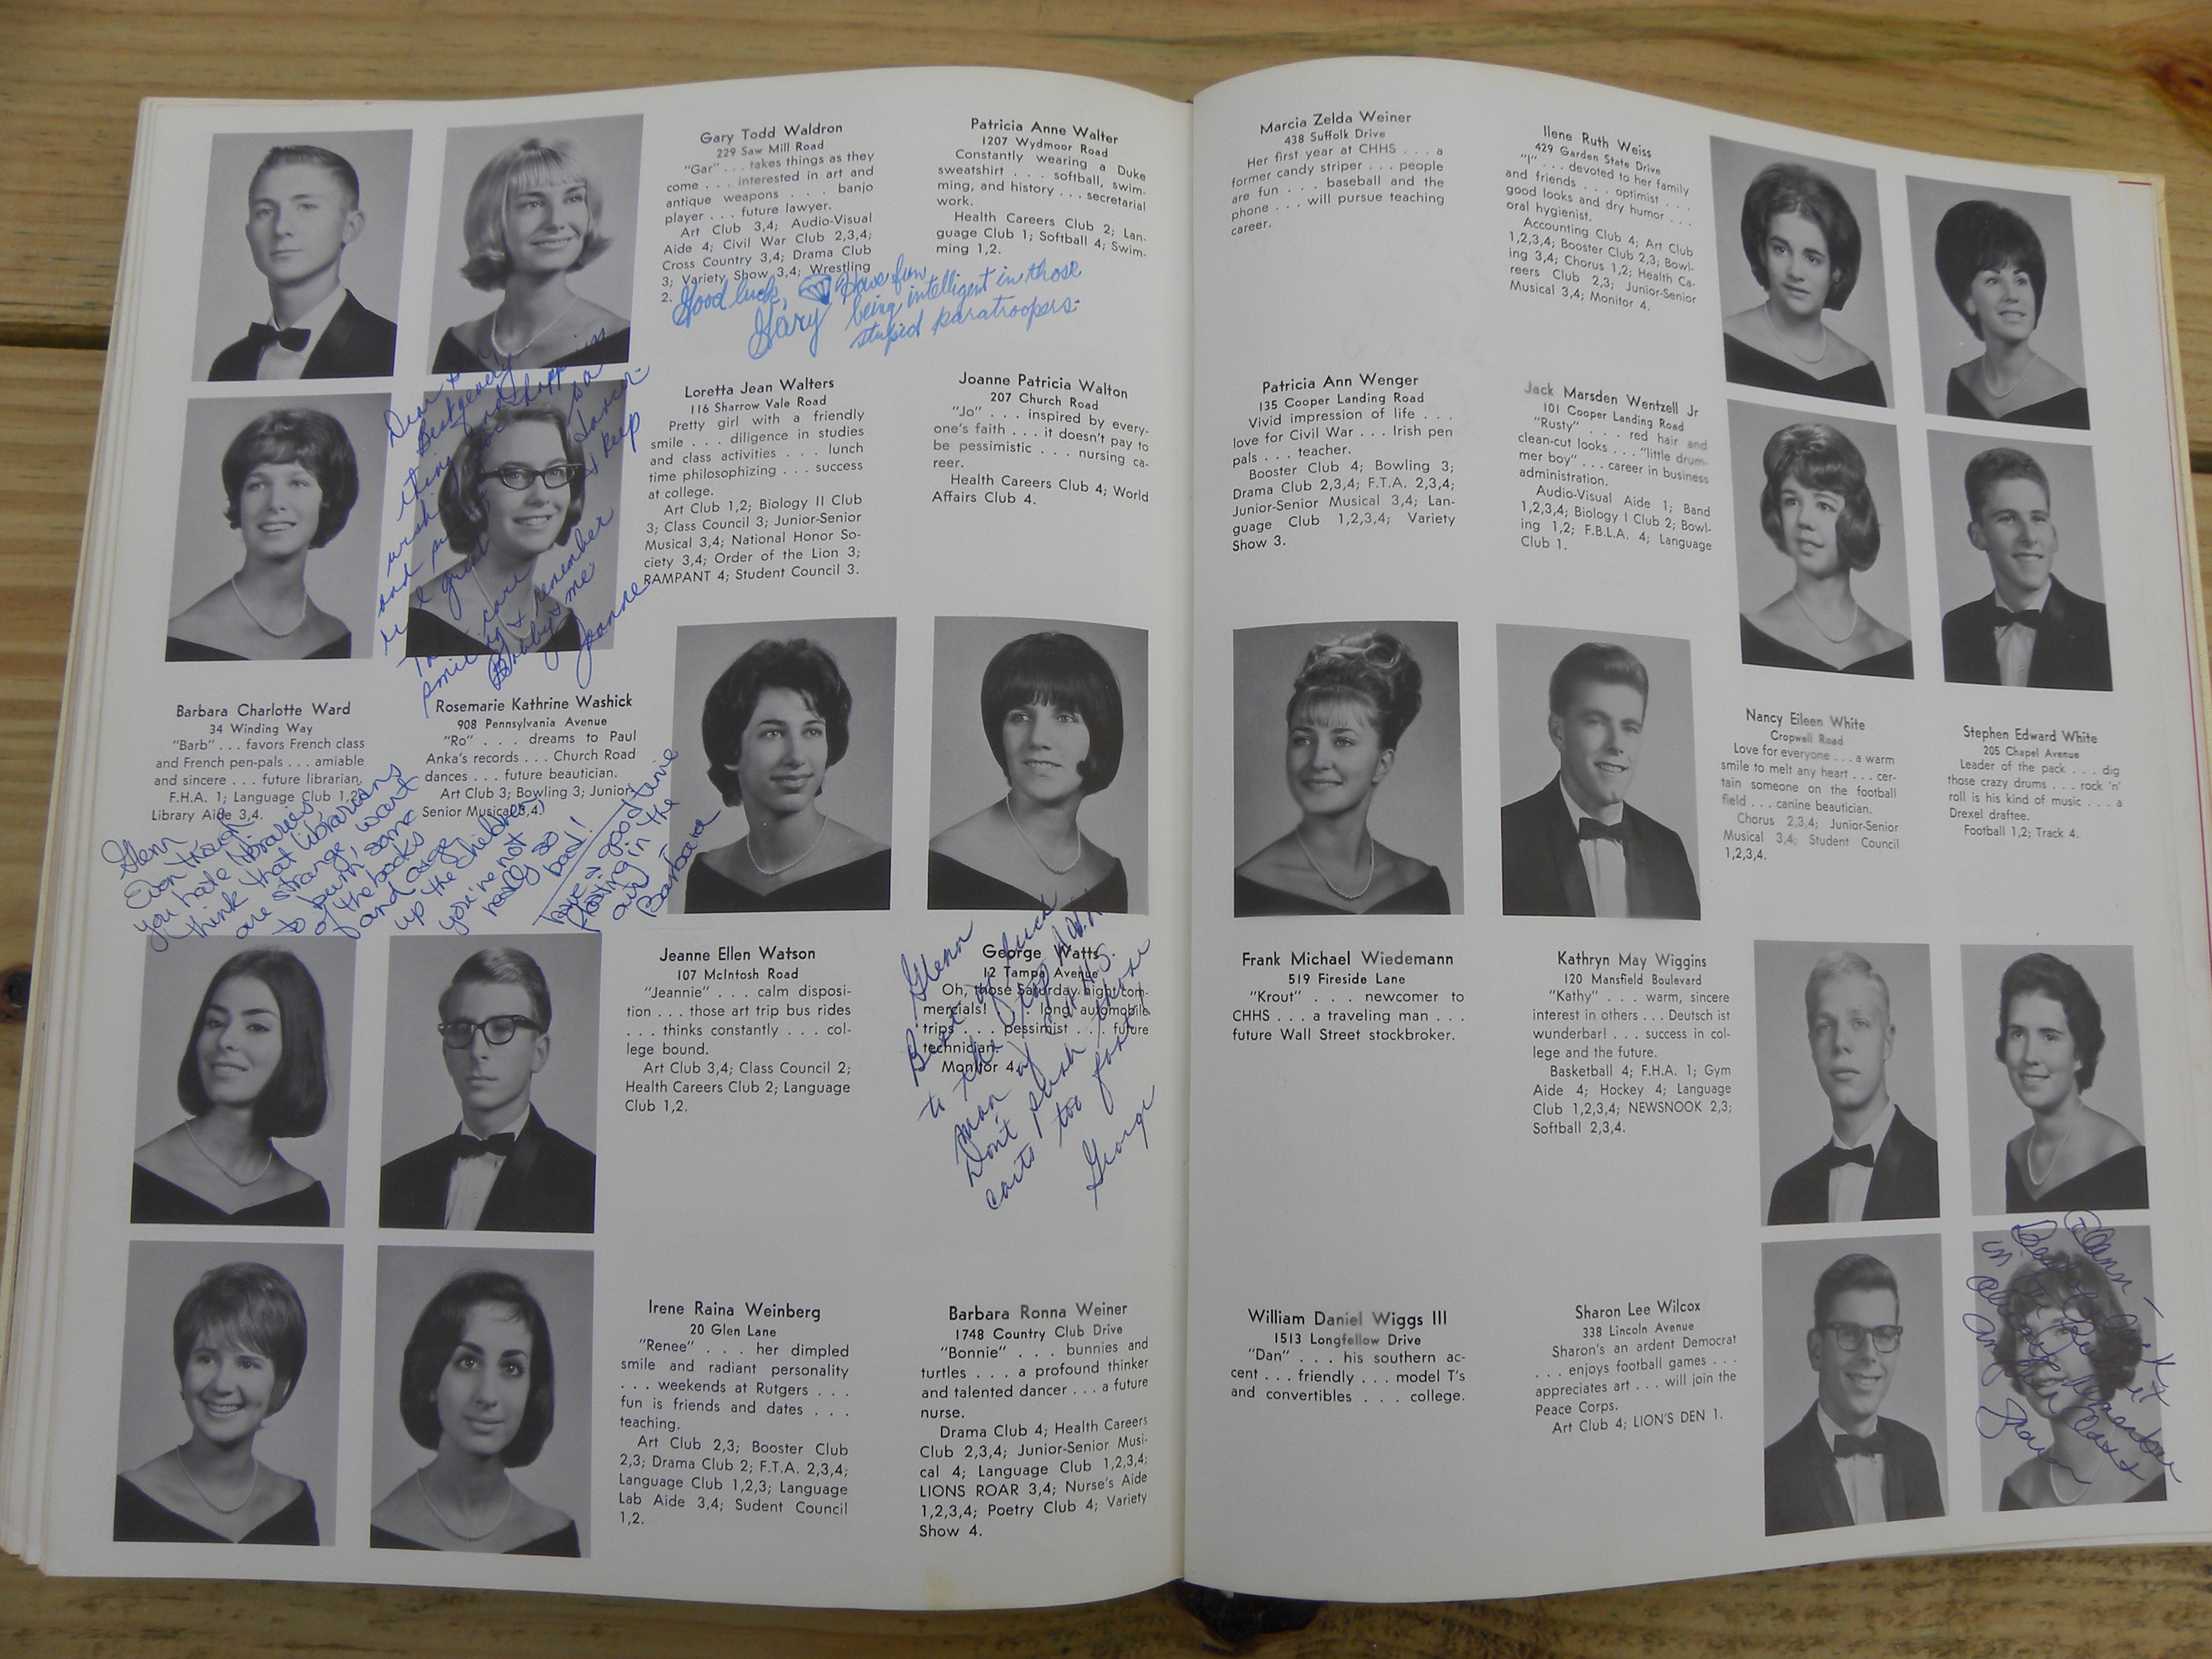 Gary Todd Waldron
229 Saw Mill Road
"Gar" . . . takes things as they
come . . . interested in art and
antique weapons . . . banjo
player . . . future lawyer.
Art Club 3,4; Audio-Visual
Aide 4; Civil War Club 2,3,4;
Cross Country 3,4; Drama Club
3; Variety Show 3,4; Wrestling
2.
Good luck,
Gary
Have fun
being intelligent in those
stupid paratroopers.
Patricia Anne Walter
1207 Wydmoor Road
Constantly wearing a Duke
sweatshirt . . . softball, swim-
ming, and history . . . secretarial
work.
Health Careers Club 2; Lan-
guage Club 1; Softball 4; Swim-
ming 1,2.
Loretta Jean Walters
116 Sharrow Vale Road
Pretty girl with a friendly
smile . . . diligence in studies
and class activities . . . lunch
time philosophizing . . . success
at college.
Art Club 1,2; Biology II Club
3; Class Council 3; Junior-Senior
Musical 3,4; National Honor So-
ciety 3,4; Order of the Lion 3;
RAMPANT 4; Student Council 3.
Joanne Patricia Walton
207 Church Road
"Jo" . . . inspired by every-
one's faith . . . it doesn't pay to
be pessimistic . . . nursing ca-
reer.
Health Careers Club 4; World
Affairs Club 4.
Dear
keep
care
smiling & remember
Bobby & me
Joanne
Barbara Charlotte Ward
34 Winding Way
"Barb" . . . favors French class
and French pen-pals . . . amiable
and sincere . . . future librarian.
F.H.A. 1; Language Club 1,2;
Library Aide 3,4.
Rosemarie Kathrine Washick
908 Pennsylvania Avenue
"Ro" . . . dreams to Paul
Anka's records . . . Church Road
dances . . . future beautician.
Art Club 3; Bowling 3; Junior-
Senior Musical 3,4.
Glenn
Even though
you hate libraries,
think that librarians
are strange, want
to burn some
of the books
and cage
up the children,
you're not
really so
bad!
Have a good time
floating in the
air
Barbara
Jeanne Ellen Watson
107 McIntosh Road
"Jeannie" . . . calm disposi-
tion . . . those art trip bus rides
. . . thinks constantly . . . col-
lege bound.
Art Club 3,4; Class Council 2;
Health Careers Club 2; Language
Club 1,2.
George Watts
12 Tampa Avenue
Oh, those Saturday night com-
mercials! . . . long automobile
trips . . . pessimist . . . future
technician.
Monitor 4.
Glenn
Best of luck
to the top A.V.
man of CHHS.
Don't push those
carts too fast
George
Irene Raina Weinberg
20 Glen Lane
"Renee" . . . her dimpled
smile and radiant personality
. . . weekends at Rutgers . . .
fun is friends and dates . . .
teaching.
Art Club 2,3; Booster Club
2,3; Drama Club 2; F.T.A. 2,3,4;
Language Club 1,2,3; Language
Lab Aide 3,4; Sudent Council
1,2.
Barbara Ronna Weiner
1748 Country Club Drive
"Bonnie" . . . bunnies and
turtles . . . a profound thinker
and talented dancer . . . a future
nurse.
Drama Club 4; Health Careers
Club 2,3,4; Junior-Senior Musi-
cal 4; Language Club 1,2,3,4;
LIONS ROAR 3,4; Nurse's Aide
1,2,3,4; Poetry Club 4; Variety
Show 4.
Marcia Zelda Weiner
438 Suffolk Drive
Her first year at CHHS . . . a
former candy striper . . . people
are fun . . . baseball and the
phone . . . will pursue teaching
career.
Ilene Ruth Weiss
429 Garden State Drive
"I" . . . devoted to her family
and friends . . . optimist . . .
good looks and dry humor . . .
oral hygienist.
Accounting Club 4; Art Club
1,2,3,4; Booster Club 2,3; Bowl-
ing 3,4; Chorus 1,2; Health Ca-
reers Club 2,3; Junior-Senior
Musical 3,4; Monitor 4.
Patricia Ann Wenger
135 Cooper Landing Road
Vivid impression of life . . .
love for Civil War . . . Irish pen
pals . . . teacher.
Booster Club 4; Bowling 3;
Drama Club 2,3,4; F.T.A. 2,3,4;
Junior-Senior Musical 3,4; Lan-
guage Club 1,2,3,4; Variety
Show 3.
Jack Marsden Wentzell Jr
101 Cooper Landing Road
"Rusty" . . . red hair and
clean-cut looks . . . "little drum-
mer boy" . . . career in business
administration.
Audio-Visual Aide 1; Band
1,2,3,4; Biology I Club 2; Bowl-
ing 1,2; F.B.L.A. 4; Language
Club 1.
Nancy Eileen White
Cropwell Road
Love for everyone . . . a warm
smile to melt any heart . . . cer-
tain someone on the football
field . . . canine beautician.
Chorus 2,3,4; Junior-Senior
Musical 3,4; Student Council
1,2,3,4.
Stephen Edward White
205 Chapel Avenue
Leader of the pack . . . dig
those crazy drums . . . rock 'n'
roll is his kind of music . . . a
Drexel draftee.
Football 1,2; Track 4.
Frank Michael Wiedemann
519 Fireside Lane
"Krout" . . . newcomer to
CHHS . . . a traveling man . . .
future Wall Street stockbroker.
Kathryn May Wiggins
120 Mansfield Boulevard
"Kathy" . . . warm, sincere
interest in others . . . Deutsch ist
wunderbar! . . . success in col-
lege and the future.
Basketball 4; F.H.A. 1; Gym
Aide 4; Hockey 4; Language
Club 1,2,3,4; NEWSNOOK 2,3;
Softball 2,3,4.
William Daniel Wiggs III
1513 Longfellow Drive
"Dan" . . . his southern ac-
cent . . . friendly . . . model T's
and convertibles . . . college.
Sharon Lee Wilcox
338 Lincoln Avenue
Sharon's an ardent Democrat
. . . enjoys football games . . .
appreciates art . . . will join the
Peace Corps.
Art Club 4; LION'S DEN 1.
Glenn -